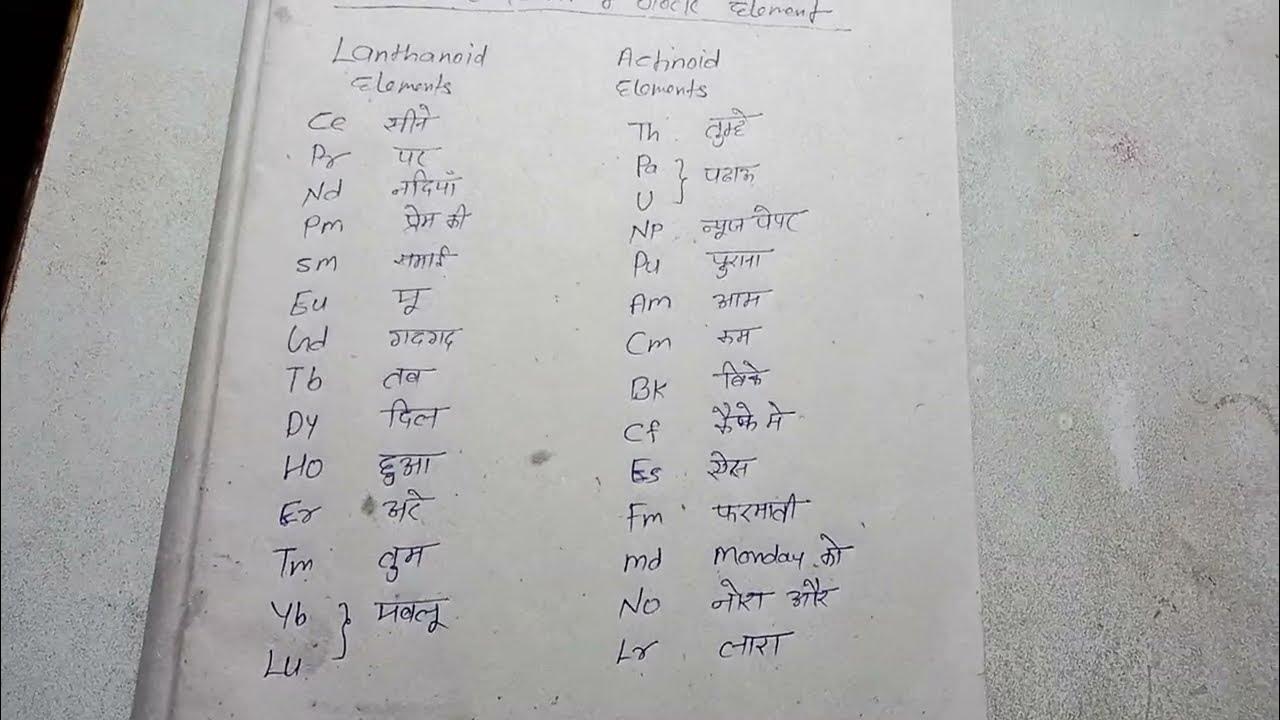 Element
Lanthanoid Actinoid
Elements Elements
Ce सीने Th तुम्हे
Pr पर Pa } पढाऊ
Nd नदियाँ U
Pm प्रेम की NP न्यूज पेपर
Sm समाई Pu पुराना
Eu यू Am आम
Gd गदगद Cm कम
Tb तब BK बिके
Dy दिल Cf कैफे मे
Ho हुआ Es ऐस
Er अरे Fm फरमाती
Tm तुम md monday को
Yb } No नोरा और
Lu Lr लारा